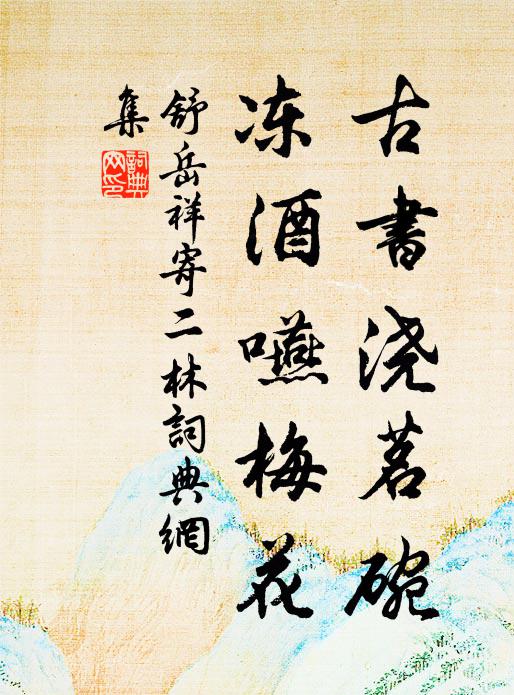 古書浇茗碗
冻酒嚥梅花
舒岳祥寄二林詞典網
集
詞典網印